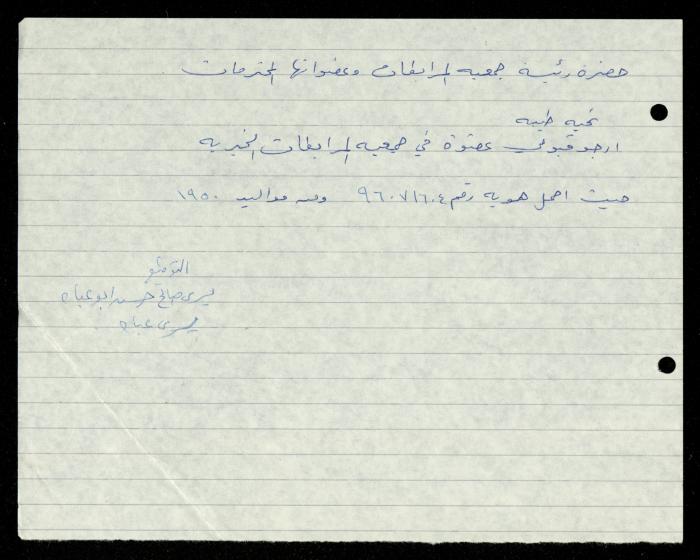 حضرة رئيسة جمعيه المرابطات وعضواتها المحترمات
تحيه طيبه
ارجو قبولي عضوة في جمعيه المرابطات الخيريه
حيث احمل هويه رقم ٩٦٠٧١٦٠٤ ومن مواليد ١٩٥٠
التوقيع
يسرى صالح حسن ابو عباه
يسرى عباه